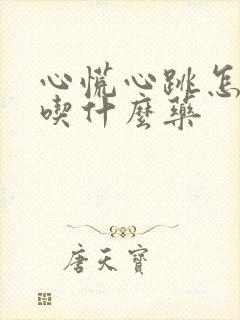 心慌心跳怎
喫什麼藥
唐天寶